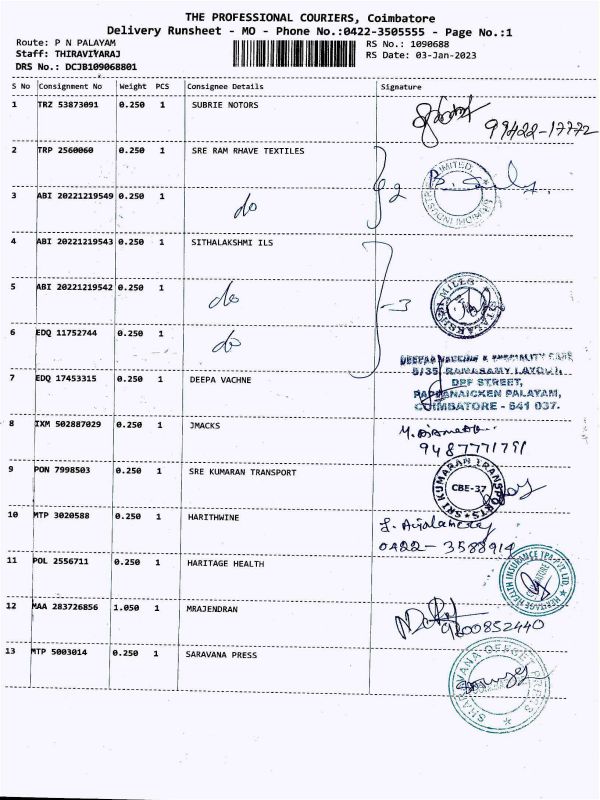 THE PROFESSIONAL COURIERS, Coimbatore
Delivery Runsheet - MO - Phone No.:0422-3505555 - Page No.:1
Route: P N PALAYAM
RS No.: 1090688
Staff: THIRAVIYARAJ
RS Date: 03-Jan-2023
DRS No.: DCJB109068801
S No Consignment No Weight PCS Consignee Details Signature
1 TRZ 53873091 0.250 1 SUBRIE NOTORS
99422-17772
2 TRP 2560060 0.250 1 SRE RAM RHAVE TEXTILES
2
LIMITED
3 ABI 20221219549 0.250 1 do
4 ABI 20221219543 0.250 1 SITHALAKSHMI ILS
5 ABI 20221219542 0.250 1 do
-3
6 EDQ 11752744 0.250 1 do
DEEPAM VACCINE & SPECIALITY CARE
5/35, RAMASAMY LAYOUT,
7 EDQ 17453315 0.250 1 DEEPA VACHNE
DEF STREET,
PAPPANAICKEN PALAYAM,
COIMBATORE - 641 037.
8 IXM 502887029 0.250 1 JMACKS
9487771791
9 PON 7998503 0.250 1 SRE KUMARAN TRANSPORT
SRI KUMARAN TRANSPORTS
CBE-37
10 MTP 3020588 0.250 1 HARITHWINE
0422-3588914
11 POL 2556711 0.250 1 HARITAGE HEALTH
HERITAGE HEALTH INSURANCE TPA PVT. LTD.
COIMBATORE
12 MAA 283726856 1.050 1 MRAJENDRAN
9200852440
13 MTP 5003014 0.250 1 SARAVANA PRESS
SHARAVANA OFFSET PRESS